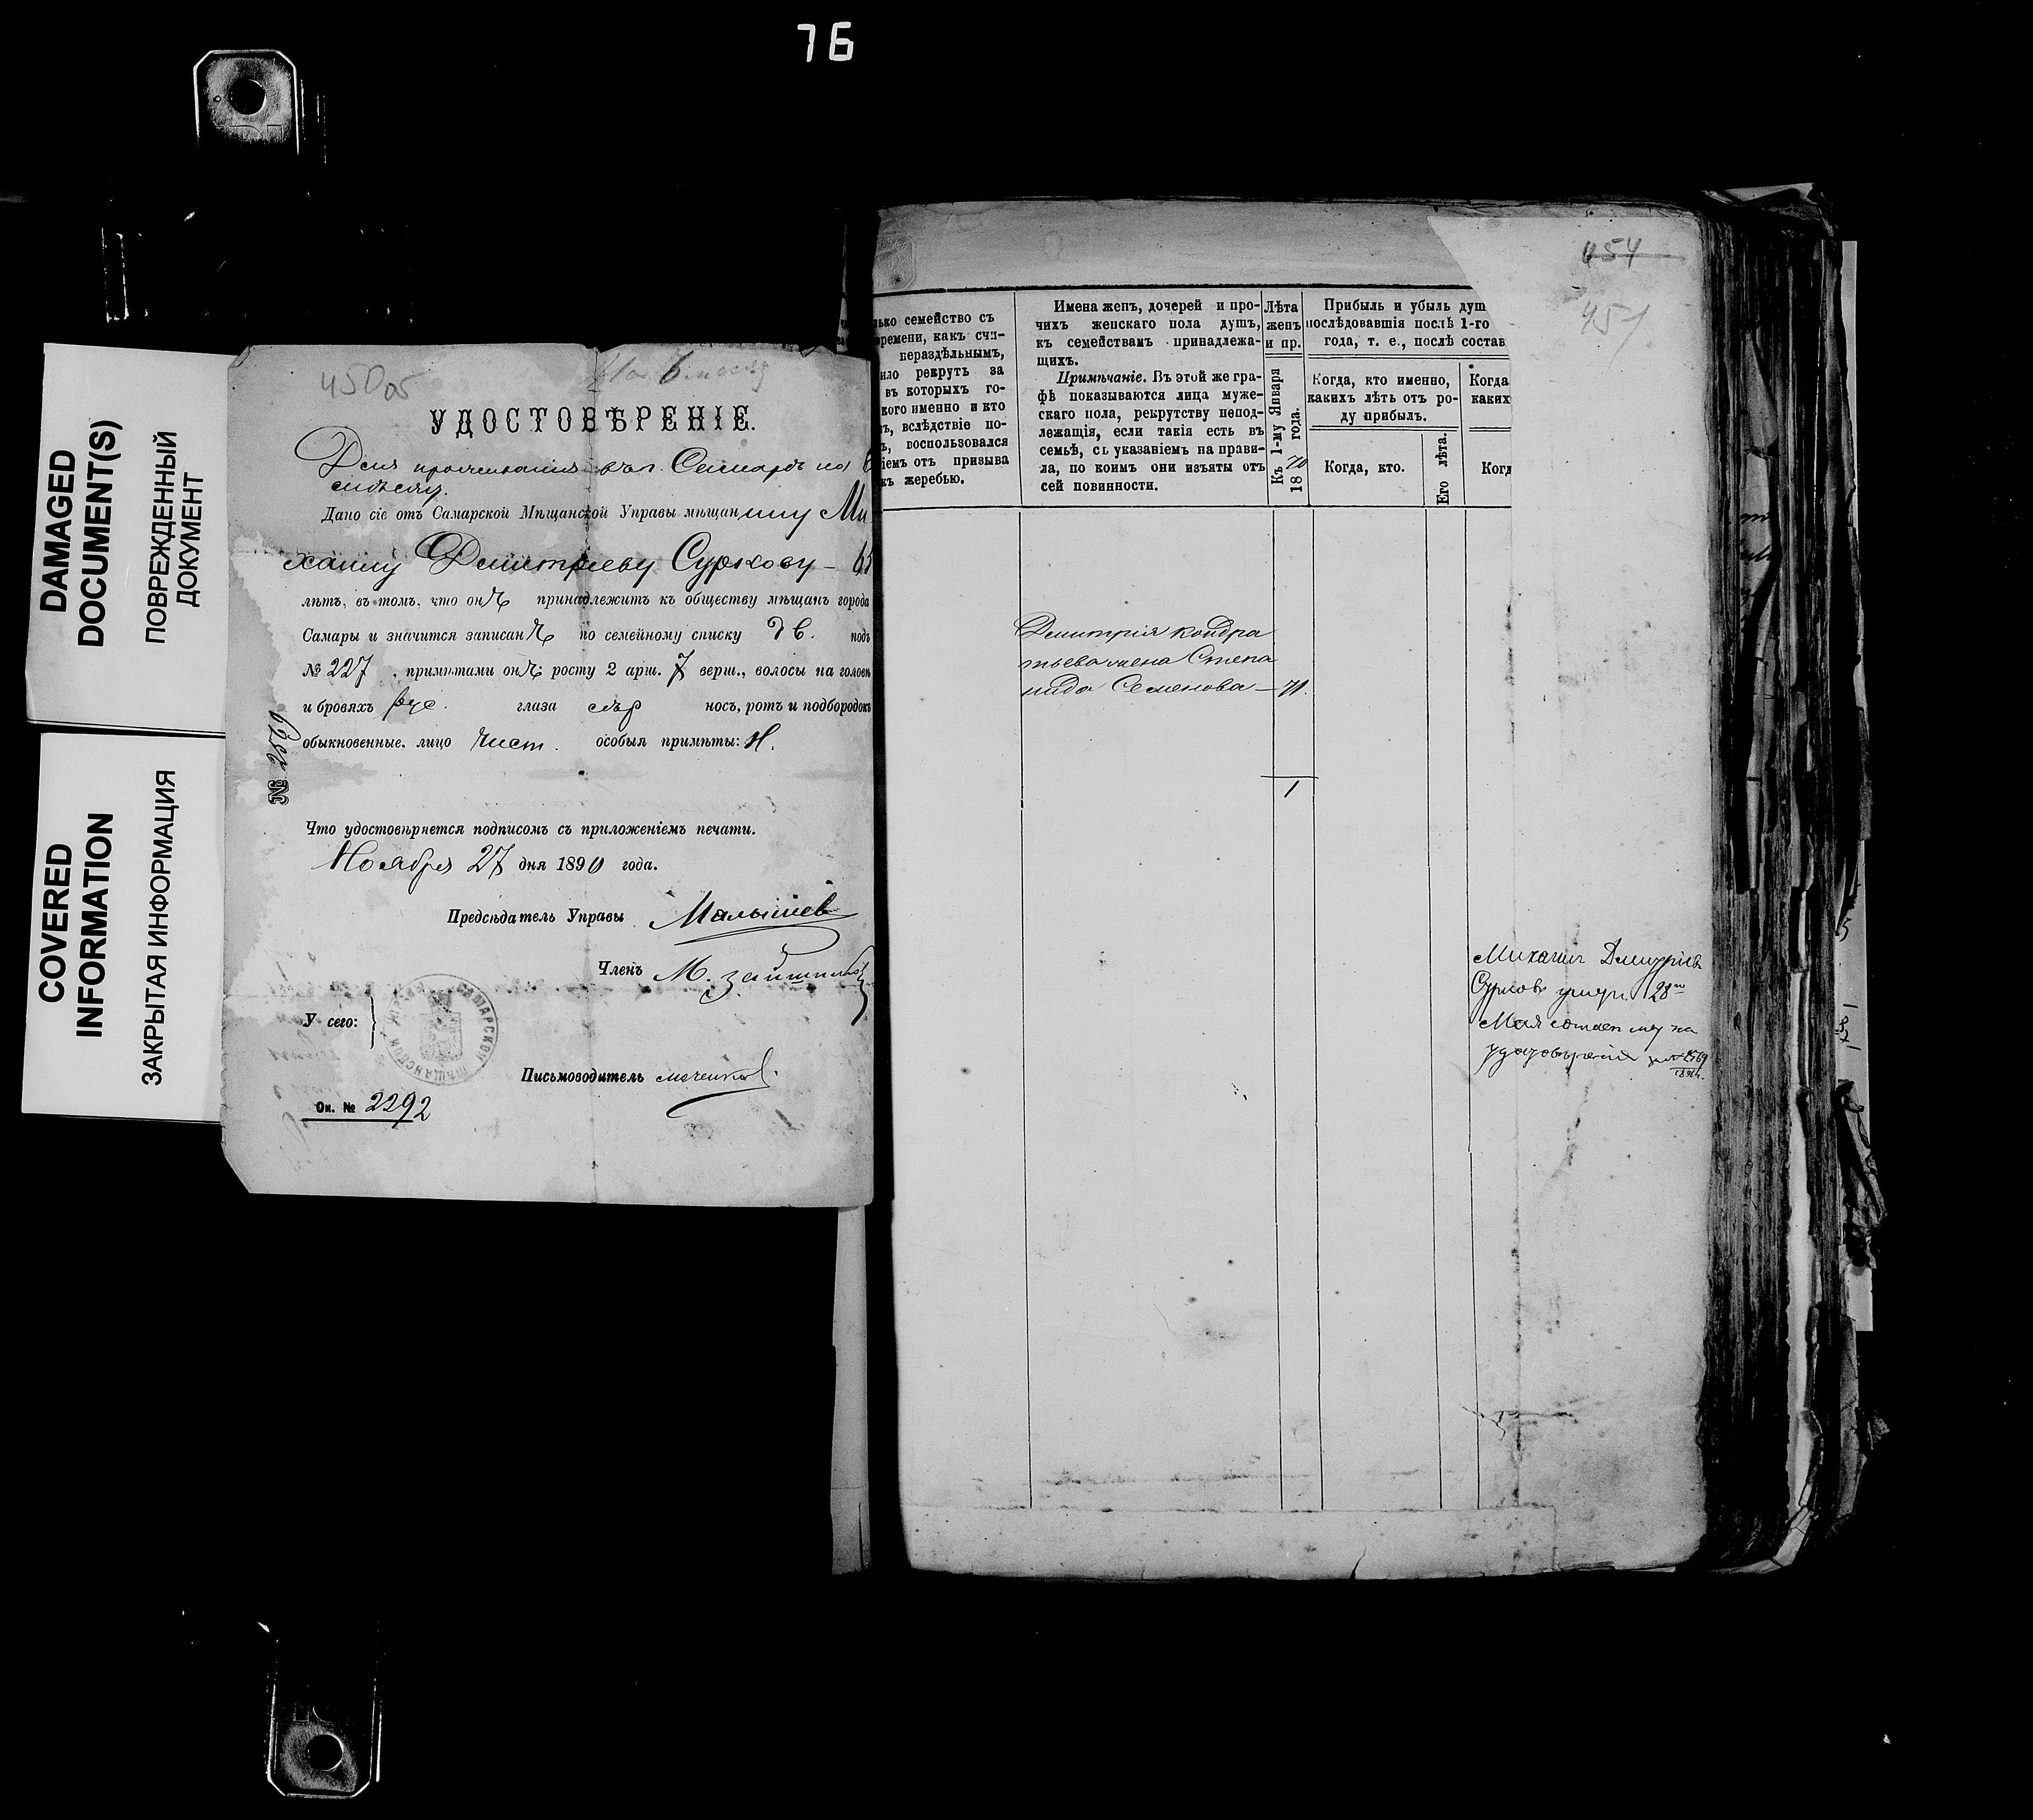 76
DAMAGED
DOCUMENT(S)
ПОВРЕЖДЕННЫЙ
ДОКУМЕНТ
COVERED
INFORMATION
ЗАКРЫТАЯ ИНФОРМАЦИЯ
450об
На 6 месяц
УДОСТОВѢРЕНІЕ.
Для проживанія въ г. Самарѣ на 6
месяцу.
Дано сіе отъ Самарской Мѣщанской Управы мѣщанину Ми
хаилу Дмитріеву Суркову – 65
лѣтъ, въ томъ, что онъ принадлежитъ къ обществу мѣщанъ города
Самары и значится записанъ по семейному списку подъ
№ 227. примѣтами онъ: росту 2 арш. 7 верш., волосы на головѣ
и бровяхъ рус. глаза сѣр носъ, ротъ и подбородокъ
обыкновенные, лицо чист. особыя примѣты: Н.
№ 6252
Что удостовѣряется подписомъ съ приложеніемъ печати.
Ноября 27 дня 1890 года.
Предсѣдатель Управы Малышев
Членъ М.
У сего:
САМАРСКОЙ МѢЩАНСКОЙ
Письмоводитель
Ок. № 2292
454
451
лько семейство съ
времени, какъ счи-
нераздѣльнымъ,
ило рекрутъ за
въ которыхъ го-
кого именно и кто
ъ, вслѣдствіе по-
ъ, воспользовался
іемъ отъ призыва
къ жеребью.
Имена женъ, дочерей и про-
чихъ женскаго пола душъ,
къ семействамъ принадлежа-
щихъ.
Примѣчаніе. Въ этой же гра-
фѣ показываются лица муже-
скаго пола, рекрутству непод-
лежащія, если такія есть въ
семьѣ, съ указаніемъ на прави-
ла, по коимъ они изъяты отъ
сей повинности.
Лѣта
женъ
и пр.
Къ 1-му Января
1870 года.
Прибыль и убыль душ
послѣдовавшія послѣ 1-го
года, т. е., послѣ состав
Когда, кто именно,
какихъ лѣтъ отъ ро-
ду прибылъ.
Когда, кто.
Его лѣта.
Когда
какихъ
Когд
Дмитрія Кондра
тьева жена Степа
нида Семенова – 71.
1
Михаил Дмитріев
Сурков умер 28го
Мая
удостовѣреніи